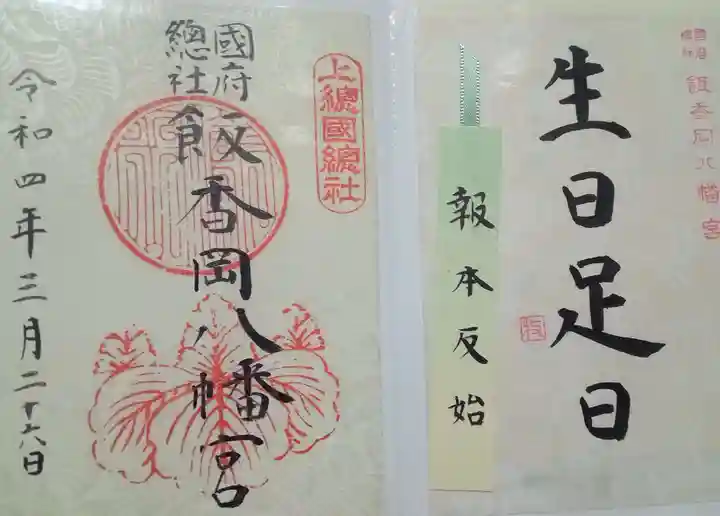 國府
總社
上總國總社
飯香岡八幡宮
令和四年三月二十六日
飯香岡八幡宮
生日足日
報本反始